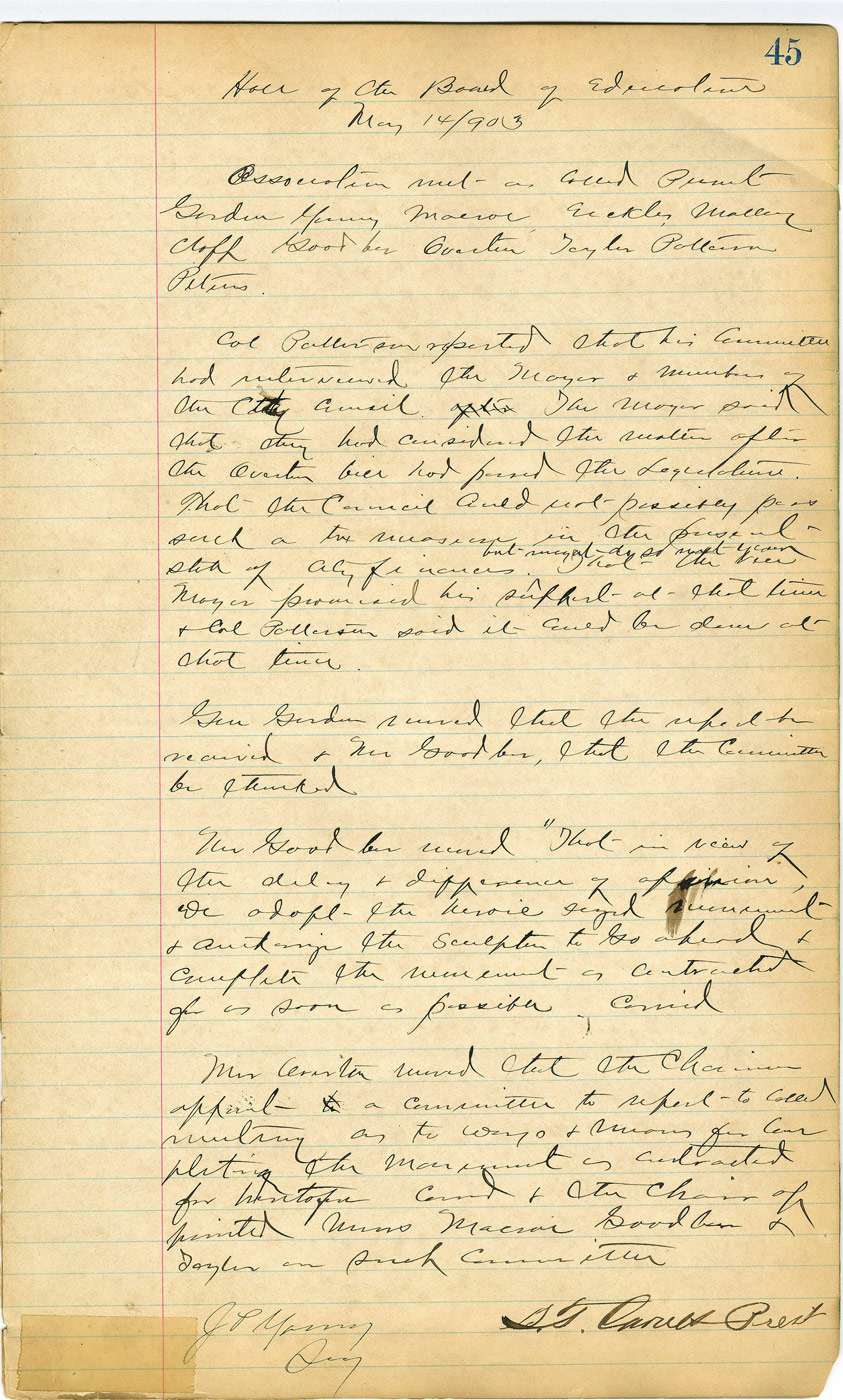 45
Hall of the Board of Education
May 14/903
Association met as called Present
Gordon Young Macrae, Eickles, Mallory
Cloff Goodbar Overton Taylor Patterson
Peters.
Col Patterson reported that his Committee
had interviewed the Mayor & members of
the City Council. after The Mayor said
that they had considered the matter after
the Overton bill had passed the Legislature.
That the Council could not possibly pass
such a tax measure in the present
but might do so next year
state of City finances. That the Vice
Mayor promised his support at that time
& Col Patterson said it could be done at
that time.
Gen Gordon moved that the report be
received & Mr Goodbar, that the Committee
be thanked
Mr Goodbar moved "That in view of
the delay & difference of opinion,
We adopt the heroic sized monument
& authorize the Sculptor to go ahead &
complete the monument as contracted
for as soon as possible. Carried
Mr Overton moved that the Chairman
appoint to a committee to report to called
meeting as to ways & means for com
pleting the Monument as contracted
for heretofore Carried & the Chair ap
pointed Messrs Macrae Goodbar &
Taylor on such Committee
J P Young
Secy
S.T. Carnes Prest